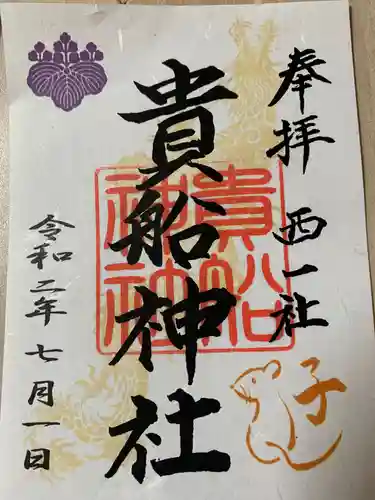 奉拝　西一社
子
貴船神社
貴船
神社
令和二年七月一日